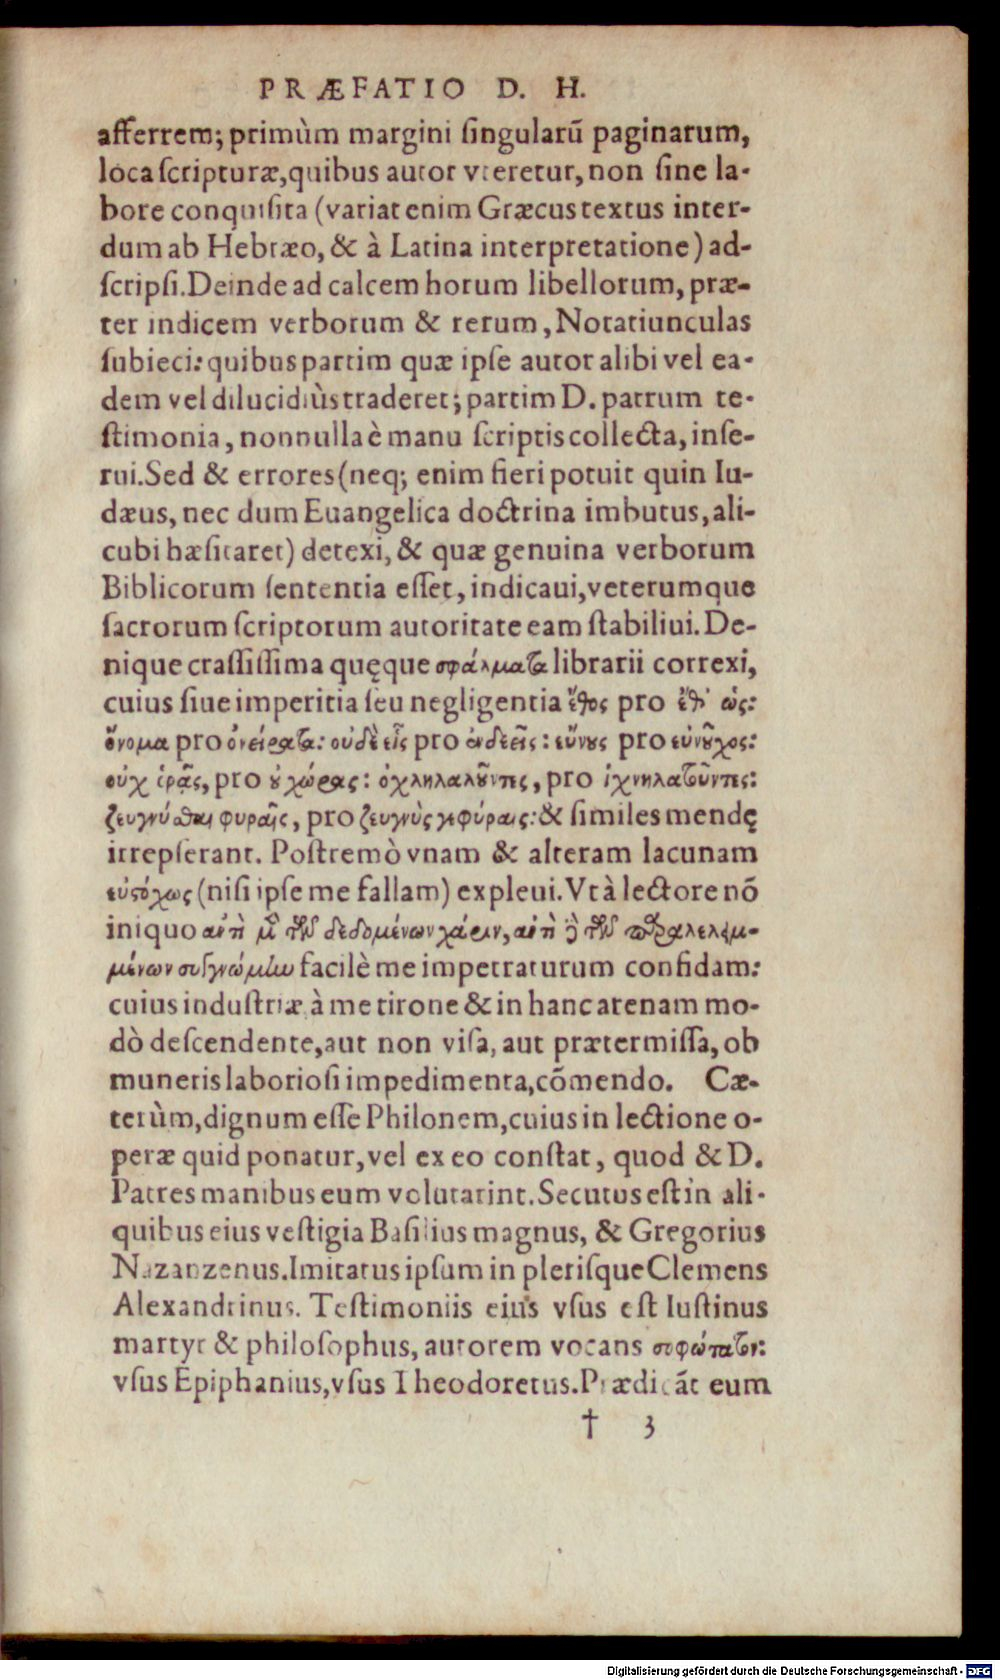 PRÆFATIO D. H.
afferrem; primùm margini ſingularũ paginarum,
loca ſcripturæ, quibus autor vteretur, non ſine la-
bore conquiſita (variat enim Græcus textus inter-
dum ab Hebræo, & à Latina interpretatione) ad-
ſcripſi. Deinde ad calcem horum libellorum, præ-
ter indicem verborum & rerum, Notatiunculas
ſubieci: quibus partim quæ ipſe autor alibi vel ea-
dem vel dilucidiùs traderet; partim D. patrum te-
ſtimonia, nonnulla è manu ſcriptis collecta, inſe-
rui. Sed & errores (neq; enim fieri potuit quin Iu-
dæus, nec dum Euangelica doctrina imbutus, ali-
cubi hæſitaret) detexi, & quæ genuina verborum
Biblicorum ſententia eſſet, indicaui, veterumque
ſacrorum ſcriptorum autoritate eam ſtabiliui. De-
nique craſſiſſima quęque σφάλματα librarii correxi,
cuius ſiue imperitia ſeu negligentia ἔθος pro ἔθ' ὡς:
ὄνομα pro ὀνείρατα: οὐδὲ εἷς pro ἐνδεεῖς: εὔνους pro εὐνοῦχος:
οὐχ ἱρᾶς, pro οὐ χώρας: ὀχληλαλοῦντες, pro ἰχνηλατοῦντες:
ζευγνύσθαι φυραῖς, pro ζευγνὺς γεφύραις: & ſimiles mendę
irrepſerant. Poſtremò vnam & alteram lacunam
εὐστόχως (niſi ipſe me fallam) expleui. Vt à lectore nõ
iniquo ἀντὶ μὲν τῶν δεδομένων χάριν, ἀντὶ δὲ τῶν παραλελειμ-
μένων συγγνώμην facilè me impetraturum confidam:
cuius induſtriæ à me tirone & in hanc arenam mo-
dò deſcendente, aut non viſa, aut prætermiſſa, ob
muneris laborioſi impedimenta, cõmendo. Cæ-
terùm, dignum eſſe Philonem, cuius in lectione o-
peræ quid ponatur, vel ex eo conſtat, quod & D.
Patres manibus eum volutarint. Secutus eſt in ali-
quibus eius veſtigia Baſilius magnus, & Gregorius
Nazanzenus. Imitatus ipſum in pleriſque Clemens
Alexandrinus. Teſtimoniis eius vſus eſt Iuſtinus
martyr & philoſophus, autorem vocans σοφώτατον:
vſus Epiphanius, vſus Theodoretus. Prædicãt eum
† 3
Digitalisierung gefördert durch die Deutsche Forschungsgemeinschaft - DFG